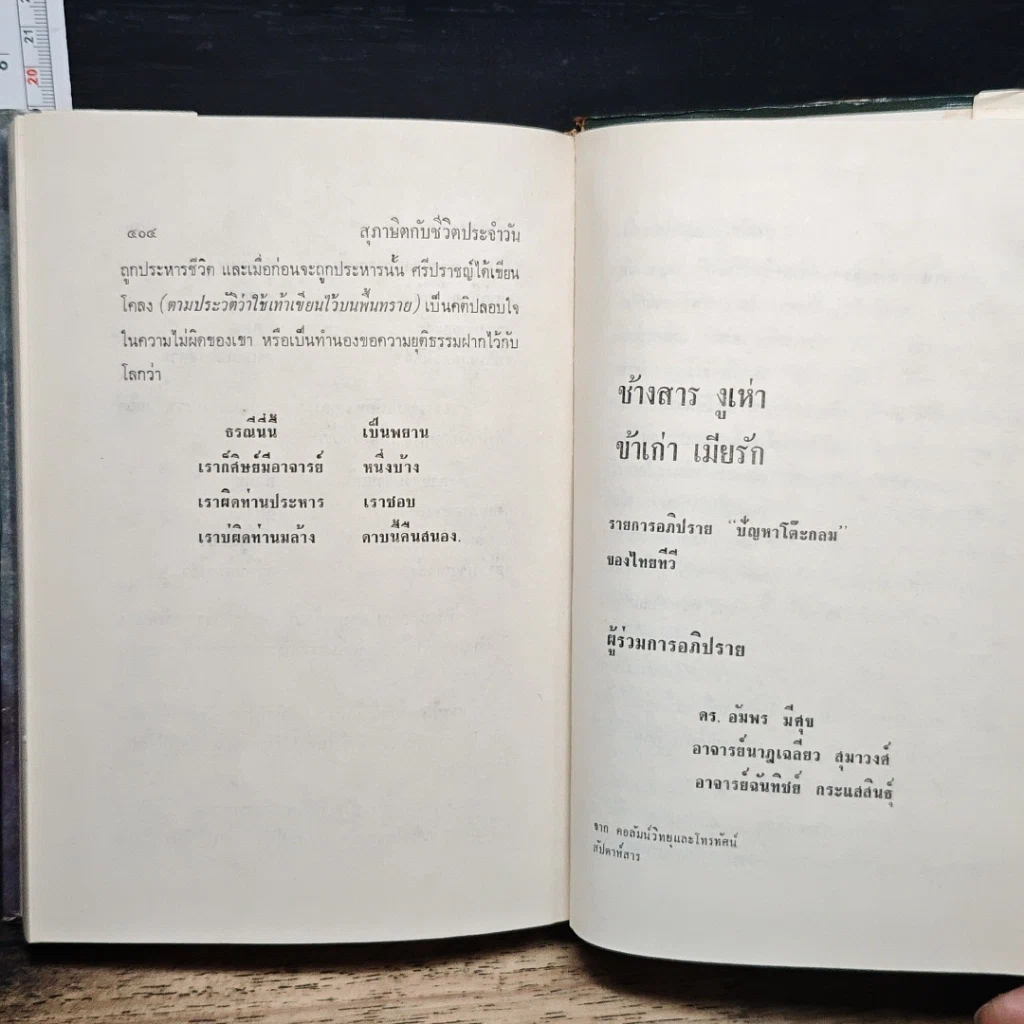 21
20
๕๐๔ สุภาษิตกับชีวิตประจำวัน
ถูกประหารชีวิต และเมื่อก่อนจะถูกประหารนั้น ศรีปราชญ์ได้เขียน
โคลง (ตามประวัติว่าใช้เท้าเขียนไว้บนพื้นทราย) เป็นคติปลอบใจ
ในความไม่ผิดของเขา หรือเป็นทำนองขอความยุติธรรมฝากไว้กับ
โลกว่า
ธรณีนี่นี้ เป็นพยาน
เราก็ศิษย์มีอาจารย์ หนึ่งบ้าง
เราผิดท่านประหาร เราชอบ
เราบ่ผิดท่านมล้าง ดาบนี้คืนสนอง.
ช้างสาร งูเห่า
ข้าเก่า เมียรัก
รายการอภิปราย "ปัญหาโต๊ะกลม"
ของไทยทีวี
ผู้ร่วมการอภิปราย
ดร. อัมพร มีศุข
อาจารย์นาฎเฉลียว สุมาวงศ์
อาจารย์ฉันทิชย์ กระแสสินธุ์
จาก คอลัมน์วิทยุและโทรทัศน์
สัปดาห์สาร